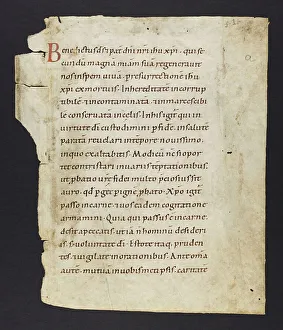 Benedictus ds & pat dni nri ihu xpi. qui se
cundu magna miam sua regeneravit
nos in spem viva. presurrectione ihu
xpi ex mortuis. In hereditate incorrup
tibile. & incontaminata. & inmarcescibi
le conservata in celis. In vos qui in
virtute di custodimini p fide. in salute
parata revelari in tempore novissimo.
in quo exaltabitis. Modicu nc si opor
te& contristari in variis teptationibus.
ut pbatio vre fidei multo p&iosius sit
auro. qd p igne pbato. Xpo igit
passo in carne. & vos eade cogitatione
armamini. Quia qui passus e in carne.
desit a peccatis. ut ia n hominu desideri
is. s voluntate di. Estote itaq. pruden
tes. & vigilate in orationibus. Ante oma
aute. mutua in vobis met ipsis. caritate